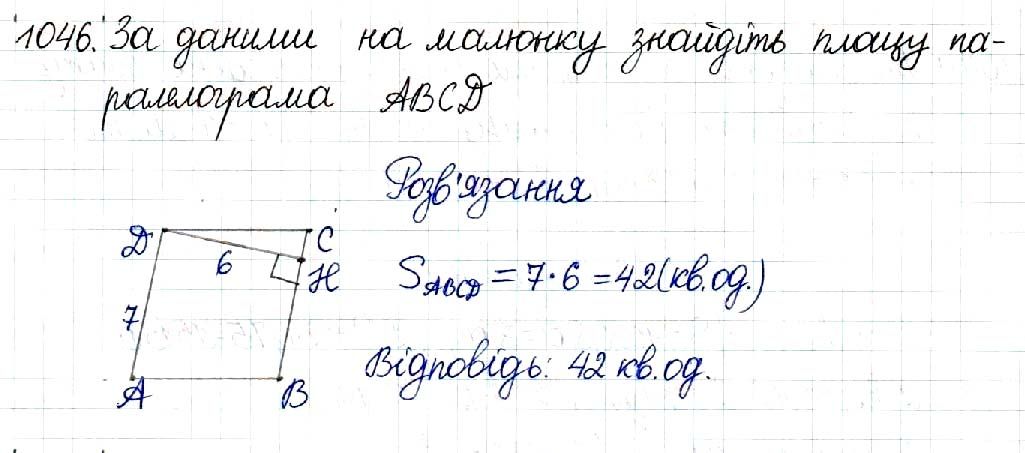 1046. За даними на малюнку знайдіть площу па-
ралелограма ABCD
Розв'язання
D C
6 H
7
A B
S ABCD = 7·6 = 42(кв.од.)
Відповідь: 42 кв.од.